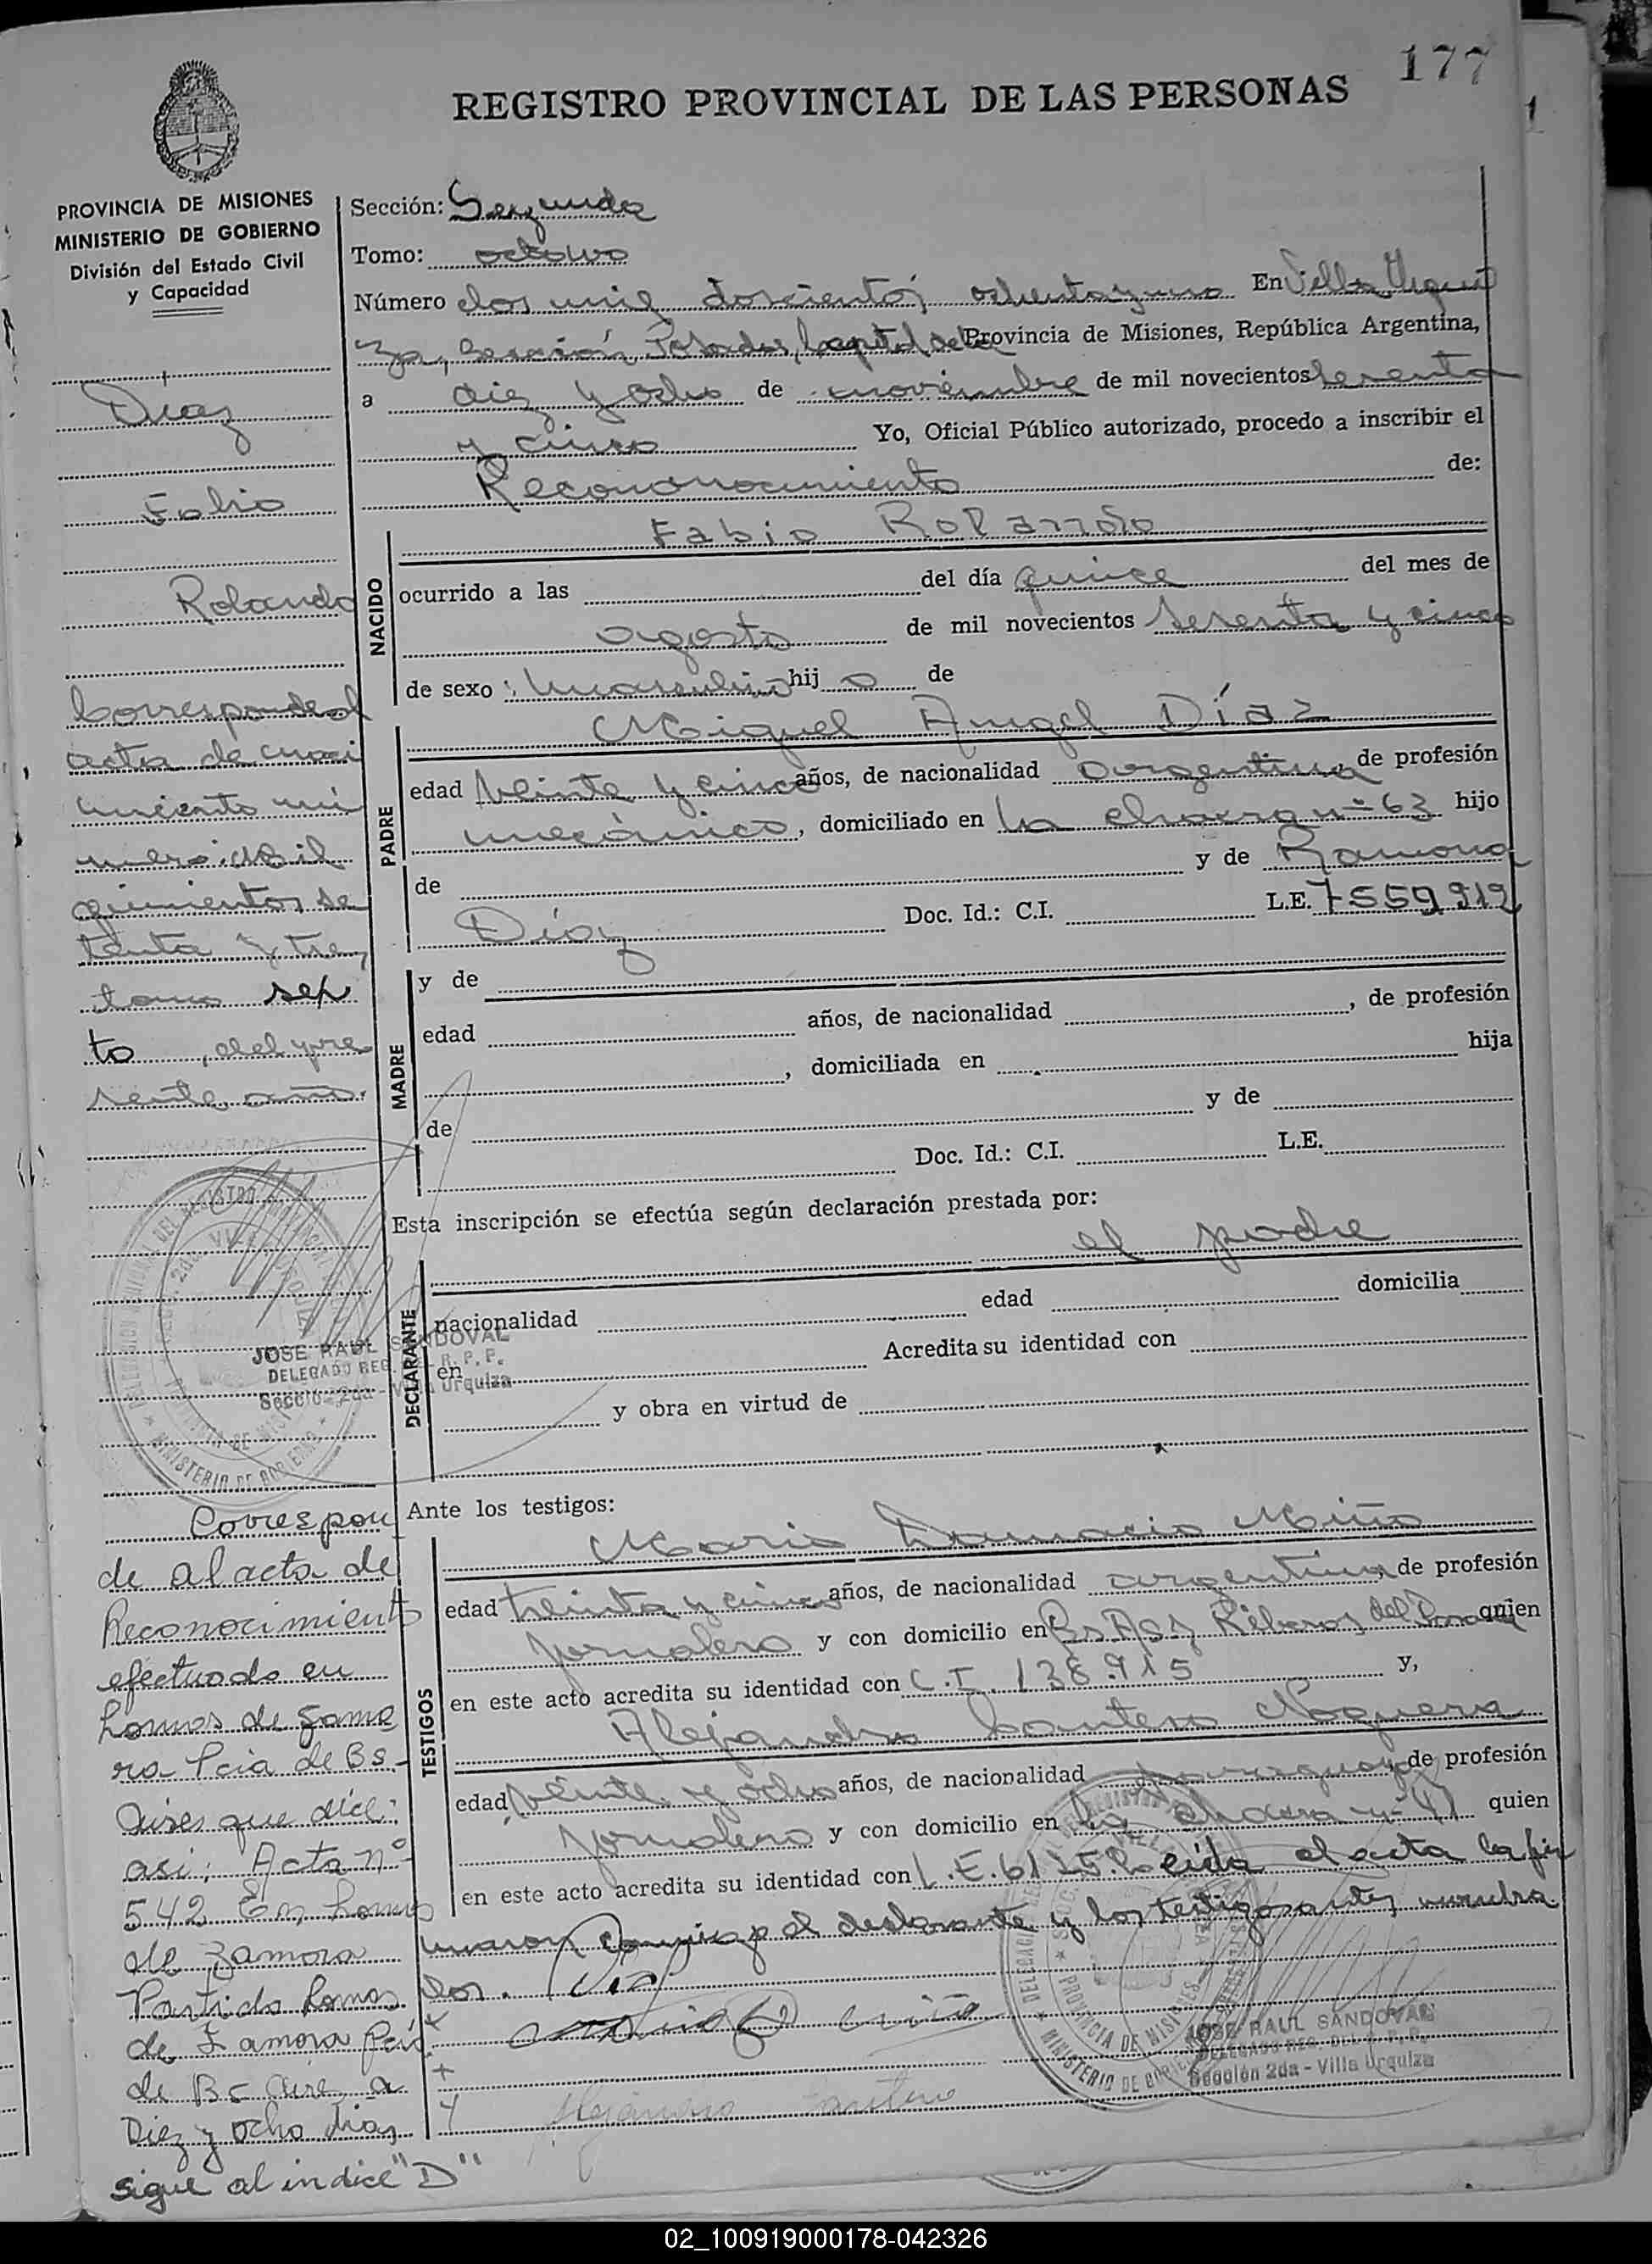 177
REGISTRO PROVINCIAL DE LAS PERSONAS
PROVINCIA DE MISIONES
MINISTERIO DE GOBIERNO
División del Estado Civil
y Capacidad
Díaz
Fabio
Rolando
Corresponde al
acta de naci
miento nú
mero: mil
quinientos se
tenta y tres
tomo sex
to, del pre
sente año.
JOSE RAUL SANDOVAL
DELEGADO REG. DEL R. P. P.
Sección 2da - Villa Urquiza
Correspon
de al acta de
Reconocimiento
efectuado en
Lomas de Zamo
ra Pcia de Bs.
Aires que dice:
asi; Acta nº
542 En Lomas
de Zamora
Partido Lomas
de Zamora Pcia
de Bs Aires a
Diez y ocho dias
sigue al indice "D"
Sección: Segunda
Tomo: octavo
Número dos mil doscientos ochenta y uno En Villa Urqui
za, Sección, Posadas, Capital de la Provincia de Misiones, República Argentina,
a diez y ocho de noviembre de mil novecientos setenta
y cinco Yo, Oficial Público autorizado, procedo a inscribir el
Recononocimiento de:
NACIDO
Fabio Rolando
ocurrido a las del día quince del mes de
agosto de mil novecientos setenta y cinco
de sexo: masculino hij o de
PADRE
Miguel Angel Díaz
edad veinte y cinco años, de nacionalidad argentina de profesión
mecánico, domiciliado en la chacra nº 63 hijo
de y de Ramona
Díaz Doc. Id.: C.I. L.E. 7559912
MADRE
y de
edad años, de nacionalidad , de profesión
, domiciliada en hija
de y de
Doc. Id.: C.I. L.E.
Esta inscripción se efectúa según declaración prestada por:
el padre
DECLARANTE
nacionalidad edad domicilia
en Acredita su identidad con
y obra en virtud de
Ante los testigos:
TESTIGOS
Mario Damacio Miño
edad treinta y cinco años, de nacionalidad argentina de profesión
jornalero y con domicilio en Bs As y Riberas del Paraná quien
en este acto acredita su identidad con C.I. 138.915 y,
Alejandro Cantero Noguera
edad veinte y ocho años, de nacionalidad paraguaya de profesión
jornalero y con domicilio en la chacra nº 41 quien
en este acto acredita su identidad con L.E. Leida el acta la fir
maron conmigo el declarante y los testigos antes nombra
dos.
Alejandro Cantero
JOSE RAUL SANDOVAL
DELEGADO REG. DEL R. P. P.
Sección 2da - Villa Urquiza
02_100919000178-042326